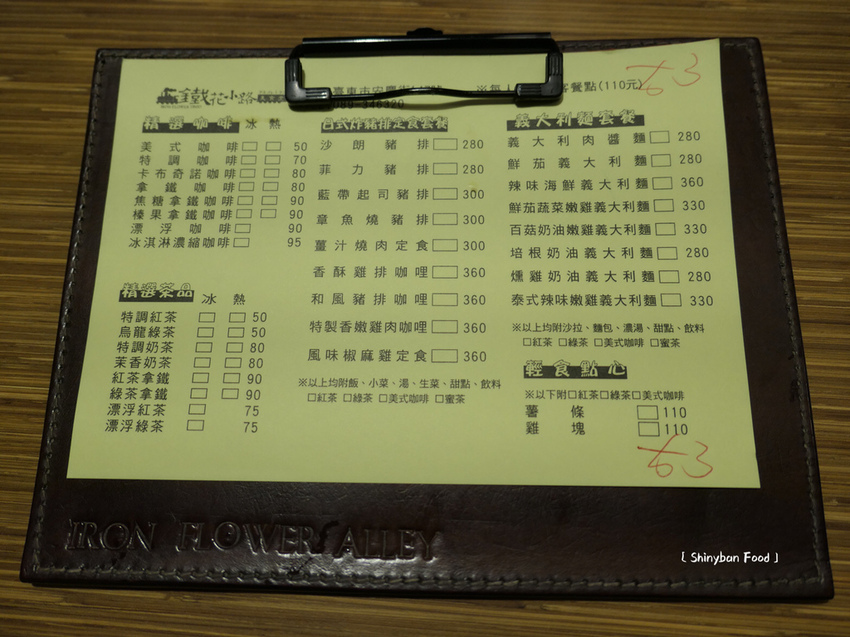 鐵花小路
臺東市安慶街
089-346320
※每人
客餐點(110元)
右3
精選咖啡 冰 熱
美式咖啡 □ □ 50
特調咖啡 □ □ 70
卡布奇諾咖啡 □ □ 80
拿鐵咖啡 □ □ 80
焦糖拿鐵咖啡 □ □ 90
榛果拿鐵咖啡 □ □ 90
漂浮咖啡 □ 90
冰淇淋濃縮咖啡 □ 95
精選茶品 冰 熱
特調紅茶 □ □ 50
烏龍綠茶 □ □ 50
特調奶茶 □ □ 80
茉香奶茶 □ □ 80
紅茶拿鐵 □ □ 90
綠茶拿鐵 □ □ 90
漂浮紅茶 □ 75
漂浮綠茶 □ 75
日式炸豬排定食套餐
沙朗豬排 □ 280
菲力豬排 □ 280
藍帶起司豬排 □ 300
章魚燒豬排 □ 300
薑汁燒肉定食 □ 300
香酥雞排咖哩 □ 360
和風豬排咖哩 □ 360
特製香嫩雞肉咖哩 □ 360
風味椒麻雞定食 □ 360
※以上均附飯、小菜、湯、生菜、甜點、飲料
□紅茶 □綠茶 □美式咖啡 □蜜茶
義大利麵套餐
義大利肉醬麵 □ 280
鮮茄義大利麵 □ 280
辣味海鮮義大利麵 □ 360
鮮茄蔬菜嫩雞義大利麵 □ 330
百菇奶油嫩雞義大利麵 □ 330
培根奶油義大利麵 □ 280
燻雞奶油義大利麵 □ 280
泰式辣味嫩雞義大利麵 □ 330
※以上均附沙拉、麵包、濃湯、甜點、飲料
□紅茶 □綠茶 □美式咖啡 □蜜茶
輕食點心
※以下附□紅茶□綠茶□美式咖啡
薯條 □ 110
雞塊 □ 110
右3
IRON FLOWER ALLEY
[ Shinyban Food ]